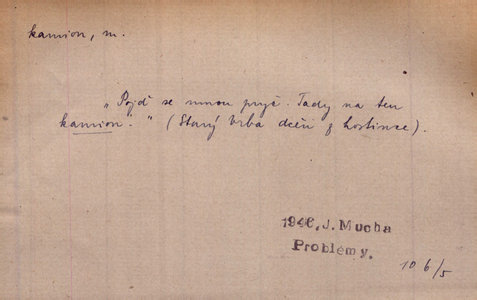 kamion, m.
„Pojď se mnou pryč. Tady na ten
kamion." (Starý Vrba dceři z hostince).
1946, J. Mucha
Problémy.
106/5